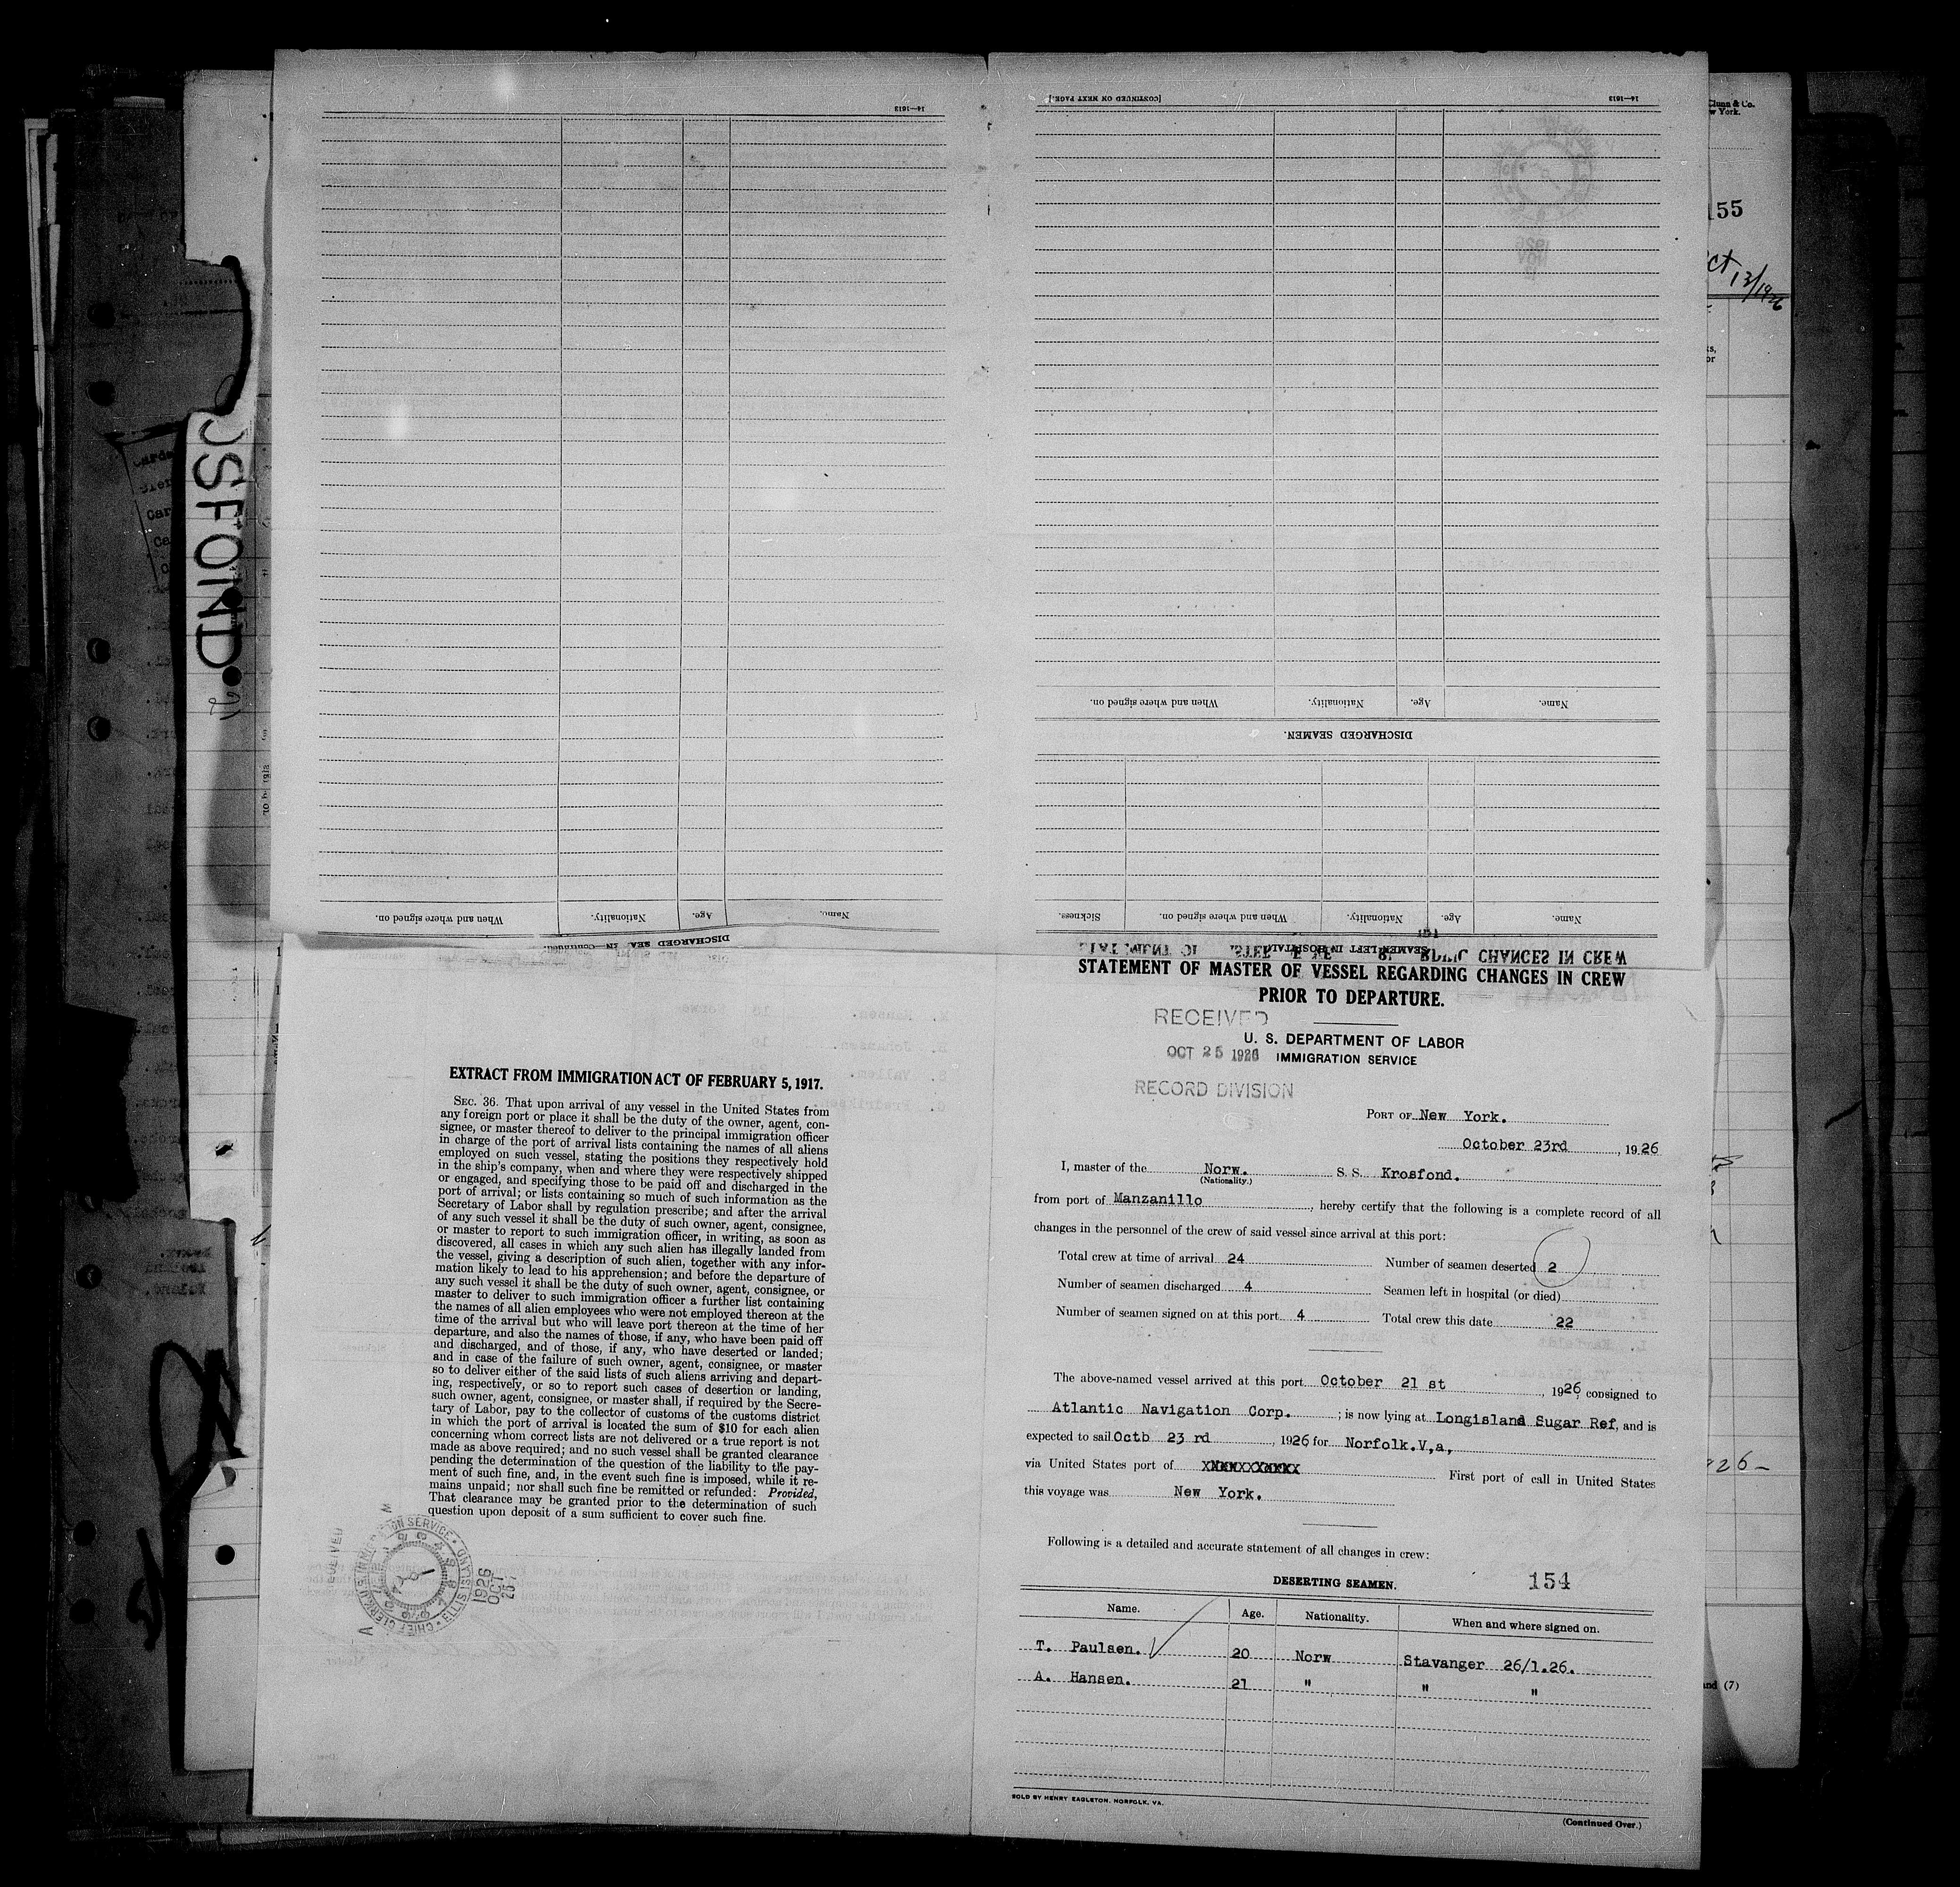 14—1613
[CONTINUED ON NEXT PAGE.]
14—1613
When and where signed on.
Nationality.
Age.
Name.
DISCHARGED SEAMEN.
Sickness.
When and where signed on.
Nationality.
Age.
Name.
SEAMEN LEFT IN HOSPITAL
When and where signed on.
Nationality.
Age.
Name.
Clunn & Co.
w York.
155
ct 13/1926
OSFOND
EXTRACT FROM IMMIGRATION ACT OF FEBRUARY 5, 1917.
SEC. 36. That upon arrival of any vessel in the United States from
any foreign port or place it shall be the duty of the owner, agent, con-
signee, or master thereof to deliver to the principal immigration officer
in charge of the port of arrival lists containing the names of all aliens
employed on such vessel, stating the positions they respectively hold
in the ship's company, when and where they were respectively shipped
or engaged, and specifying those to be paid off and discharged in the
port of arrival; or lists containing so much of such information as the
Secretary of Labor shall by regulation prescribe; and after the arrival
of any such vessel it shall be the duty of such owner, agent, consignee,
or master to report to such immigration officer, in writing, as soon as
discovered, all cases in which any such alien has illegally landed from
the vessel, giving a description of such alien, together with any infor-
mation likely to lead to his apprehension; and before the departure of
any such vessel it shall be the duty of such owner, agent, consignee, or
master to deliver to such immigration officer a further list containing
the names of all alien employees who were not employed thereon at the
time of the arrival but who will leave port thereon at the time of her
departure, and also the names of those, if any, who have been paid off
and discharged, and of those, if any, who have deserted or landed;
and in case of the failure of such owner, agent, consignee, or master
so to deliver either of the said lists of such aliens arriving and depart-
ing, respectively, or so to report such cases of desertion or landing,
such owner, agent, consignee, or master shall, if required by the Secre-
tary of Labor, pay to the collector of customs of the customs district
in which the port of arrival is located the sum of $10 for each alien
concerning whom correct lists are not delivered or a true report is not
made as above required; and no such vessel shall be granted clearance
pending the determination of the question of the liability to the pay-
ment of such fine, and, in the event such fine is imposed, while it re-
mains unpaid; nor shall such fine be remitted or refunded: Provided,
That clearance may be granted prior to the determination of such
question upon deposit of a sum sufficient to cover such fine.
CHIEF CLERK
ELLIS ISLAND
1926
OCT
25
STATEMENT OF MASTER OF VESSEL REGARDING CHANGES IN CREW
PRIOR TO DEPARTURE.
RECEIVED
U. S. DEPARTMENT OF LABOR
OCT 25 1926 IMMIGRATION SERVICE
RECORD DIVISION
PORT OF New York.
October 23rd, 1926
I, master of the Norw. S. S. Krosfond.
(Nationality.)
from port of Manzanillo, hereby certify that the following is a complete record of all
changes in the personnel of the crew of said vessel since arrival at this port:
Total crew at time of arrival 24 Number of seamen deserted 2
Number of seamen discharged 4 Seamen left in hospital (or died)
Number of seamen signed on at this port 4 Total crew this date 22
The above-named vessel arrived at this port October 21 st, 1926, consigned to
Atlantic Navigation Corp. ; is now lying at Longisland Sugar Ref, and is
expected to sail Octb 23 rd, 1926 for Norfolk.V,a,
via United States port of First port of call in United States
this voyage was New York.
Following is a detailed and accurate statement of all changes in crew:
DESERTING SEAMEN. 154
Name. Age. Nationality. When and where signed on.
T. Paulsen. 20 Norw Stavanger 26/1.26.
A. Hansen. 21 " " "
SOLD BY HENRY EAGLETON, NORFOLK, VA.
(Continued Over.)